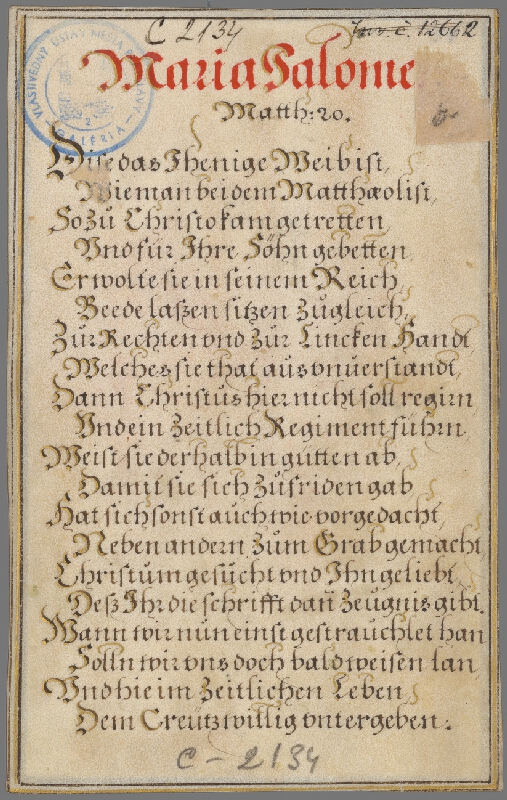 C 2134
Inv. č. 12662
VLASTIVEDNÝ ÚSTAV MESTA BRATISLAVY
GALÉRIA
2
Maria Salome
Matth: 20.
Dise das Jhenige Weib ist,
Wie man bei dem Matthæo list,
So zu Christo kam getretten
Vnd für Ihre Söhn gebetten,
Er wolte sie in seinem Reich,
Beede laßen sitzen zugleich,
Zur Rechten vnd zur Lincken Handt
Welches sie that aus vnuerstandt,
Dann Christus hier nicht soll regirn
Vnd ein Zeitlich Regiment führn,
Weist sie derhalb in gutten ab,
Damit sie sich zufriden gab
Hat sich sonst auch wie vorgedacht,
Neben andern zum Grab gemacht
Christum gesucht vnd Ihn geliebt,
Deß Ihr die schrifft dan̄ Zeugnis gibt.
Wann wir nun einst gestrauchlet han
Solln wir vns doch bald weisen lan
Vnd hie im Zeitlichen Leben
Dem Creutz willig vntergeben.
C - 2134